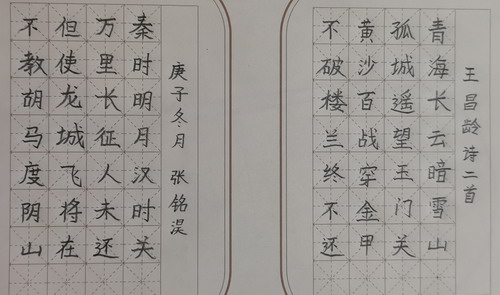 王昌龄诗二首
青海长云暗雪山
孤城遥望玉门关
黄沙百战穿金甲
不破楼兰终不还
庚子冬月 张铭
秦时明月汉时关
万里长征人未还
但使龙城飞将在
不教胡马度阴山